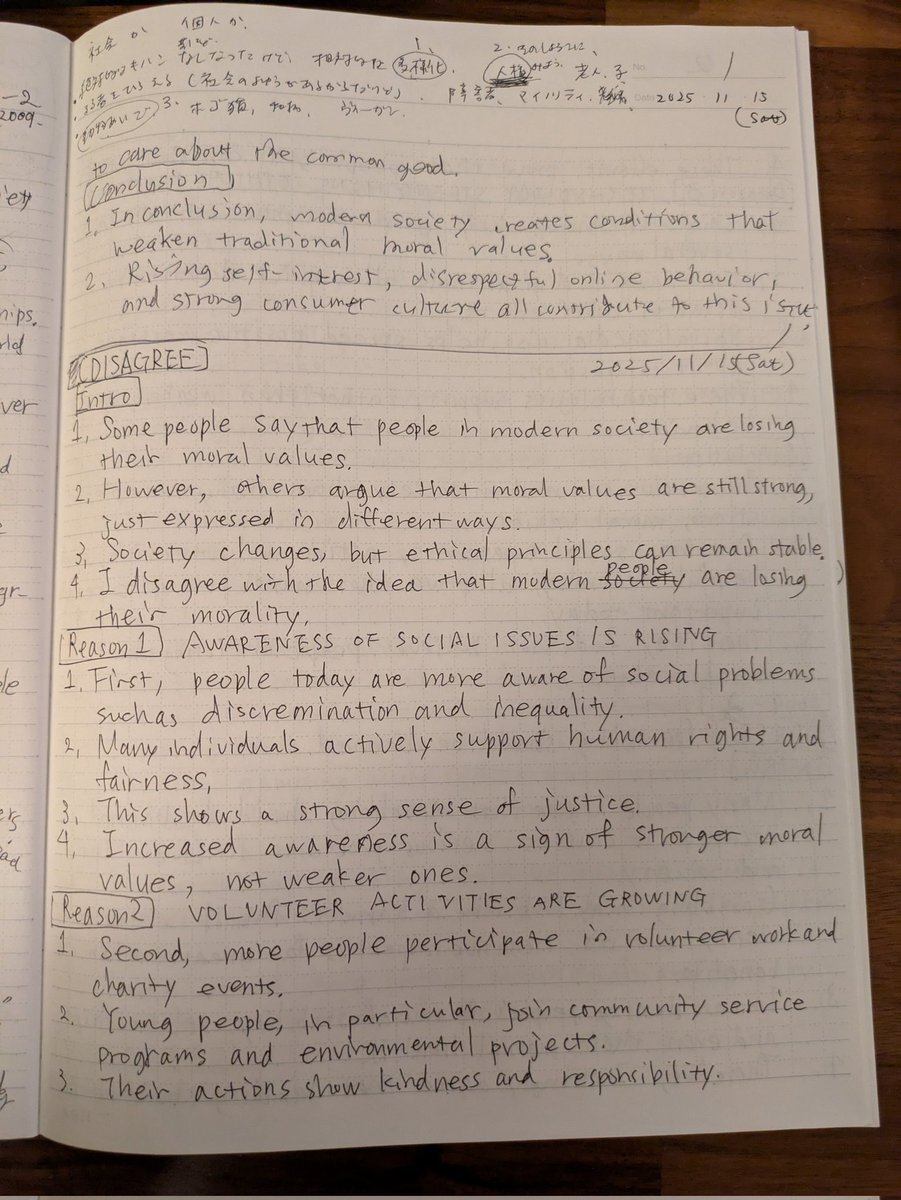 社会か 個人か.
1. 2.
相対的な 多様化.
人権 老人、子
3. 障害者、マイノリティ. No.
Date 2025・11・15
(Sat)
to care about the common good.
Conclusion
1. In conclusion, modern society creates conditions that
weaken traditional moral values.
2. Rising self-interest, disrespectful online behavior,
and strong consumer culture all contribute to this
DISAGREE 2025/11/15(Sat)
Intro
1. Some people say that people in modern society are losing
their moral values.
2. However, others argue that moral values are still strong,
just expressed in different ways.
3. Society changes, but ethical principles can remain stable.
people
4. I disagree with the idea that modern society are losing
their morality.
Reason 1 AWARENESS OF SOCIAL ISSUES IS RISING
1. First, people today are more aware of social problems
such as discremination and inequality.
2. Many individuals actively support human rights and
fairness,
3. This shows a strong sense of justice.
4. Increased awareness is a sign of stronger moral
values, not weaker ones.
Reason2 VOLUNTEER ACTIVITIES ARE GROWING
1. Second, more people perticipate in volunteer work and
charity events.
2. Young people, in particular, join community service
programs and environmental projects.
3. Their actions show kindness and responsibility.